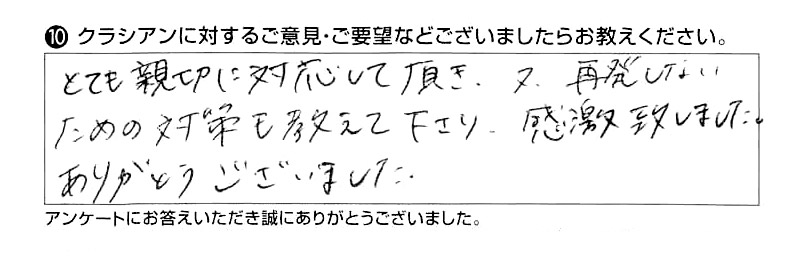 ❿ クラシアンに対するご意見・ご要望などございましたらお教えください。
とても親切に対応して頂き、又、再発しない
ための対策も教えて下さり、感激致しました。
ありがとうございました。
アンケートにお答えいただき誠にありがとうございました。